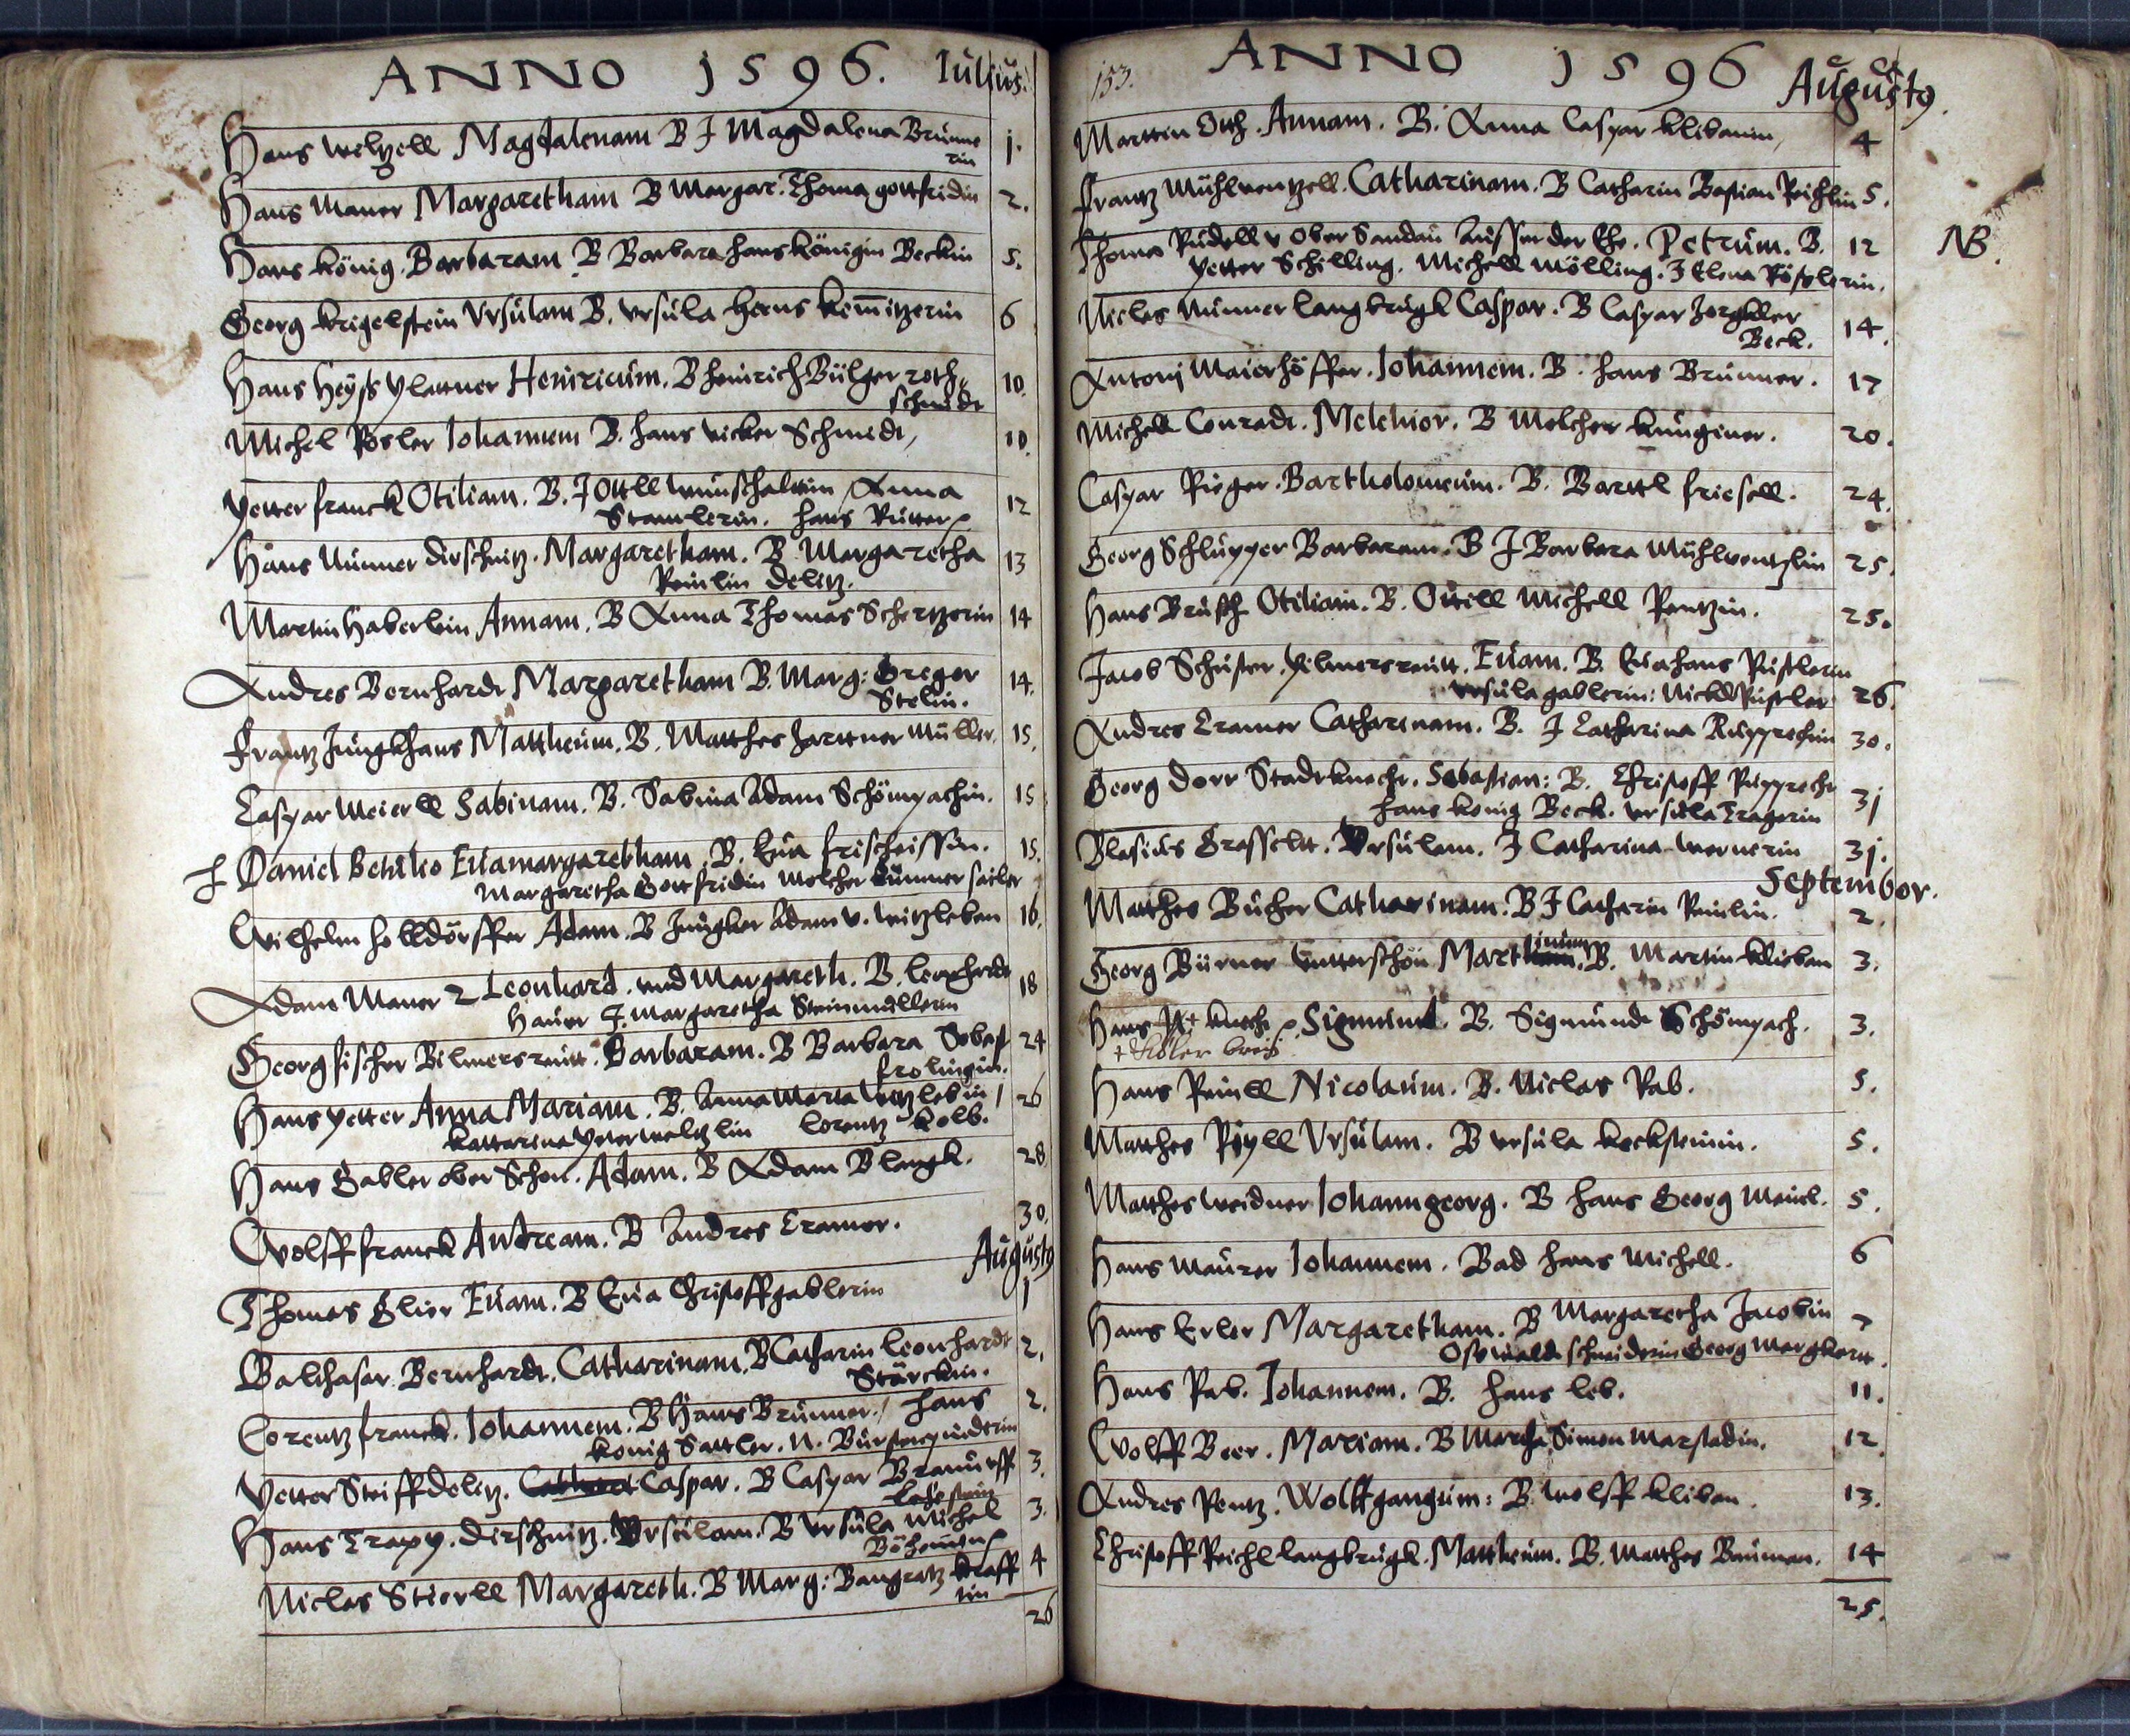 ANNO 1596. Iulius.
Hans Welzell Magdalenam B J Magdalena Brunne 1.
rin
Hans Maner Margaretham B Margar. Thoma gottfridin 2.
Hans König. Barbaram B Barbara hans Königin Beckin 5.
Georg Krigelstein Vrsulam B. Vrsula Hanns Kem̄itzerin 6
Hans Heyß plattner Heinricum. B Heinrich Bülger roth, 10.
schmidt
Michel Rösler Iohannem B. Hans Schmidt, 10.
Petter Franck Otiliam. B. J Ottll Anna 12
Stamlerin. Hans Rutter
Hans Nunner dirschnitz. Margaretham. B Margaretha 13
delitz.
Martin Haberlein Annam. B Anna Thomas Schertzerin 14
Andres Bernhardt Margaretham B. Marg: Greger 14.
Stelin.
Frantz Jungkhans Mattheum. B. Matthes Zarttner Müller. 15.
Caspar Meierll Sabinam. B. Sabina Adam Schönpachin. 15
Daniel Betulio Euamargaretham. B. Eua Frischeissin. 15.
Margaretha Gottfridin Melcher Sunner sailer
Wilhelm Holldörffer Adam. B Jungker Adam v. Witzleben 16.
Adam Maner 2 Leonhard. vnd Margareth. B. Leonhardt 18
Hauer J. Margaretha Steinmüllerin
Georg Fischer Bilmersreutt. Barbaram. B Barbara Sebast 24
Frolingin.
Hans Petter Anna Mariam. B. Anna Maria 26
Lorentz Kolb.
Hans Gabler ober Schon. Adam. B Adam Blangk. 28
Wolff Franck Andream. B Andres Cramer. 30.
Augusto
Thomas Glier Euam. B Eua Christoff gablerin 1
Balthasar Bernhardt. Catharinam. B Catharin Leonhardt 2.
Stärckin.
Lorentz Franck. Iohannem. B Hans Brunner, Hans 2.
König Sattler. N.
Petter Steiff delitz. Caspar. B Caspar 3.
Hans Trapp. dirschnitz. Vrsulam. B Vrsula Michel 3
Niclas Stierll Margareth. B Marg: Bangratz Kraff 4
tin
26
153. ANNO 1596 Augusto.
Marttin Oth. Annam. B. Anna Caspar Klibanin, 4
Frantz Mühlwentzell. Catharinam. B Catharin Bastian Reichlin 5.
Thoma Rudell v Ober Sandau Aussen der Ehe. Petrum. B. 12 NB.
Petter Schilling. Michell Mölling. J Elena Röslerin.
Niclas Nunner Langbrugk Caspar. B Caspar 14.
Beck.
Antonj Maierhöffer. Iohannem. B. Hans Brunner. 17
Michell Conradt. Melchior. B Melcher 20.
Caspar Rieger. Bartholomeum. B. Barttl Friesell. 24.
Georg Schlupper Barbaram. B J Barbara Mühlwentzlin 25.
Hans Brusch Otiliam. B. Otiell Michell Rentzin. 25.
Jacob Schuster. Pilmersreutt. Euam. B. Eua Hans Pustlerin
Vrsula gablerin: Nickl Pustler 26.
Andres Cramer Catharinam. B. J Catharina Rupprechtin 30.
Georg Dorr Stadtknecht. Sebastian: B. Christoff Rupprecht 31
Hans König Beck. Vrsula Tragerin
Blasius Grasseltt. Vrsulam. J Catharina Wernerin 31.
September.
Matthes Bucher Catharinam. B J Catharin 2.
Georg Bürner Vntterschön Martinum. B. Martin Kliban 3.
Hans Knecht Sigmund. B. Sigmundt Schönpach. 3.
Hans Reinll Nicolaum. B. Niclas Rab. 5.
Matthes Vrsulam. B Vrsula Kecksteinin. 5.
Matthes Weidner Iohanngeorg. B Hans Georg Meinl. 5.
Hans Maurer Iohannem. Bad Hans Michell. 6
Hans Erler Margaretham. B Margaretha Jacobin 7
Osswaldt schneiderin Georg Margkartt.
Hans Rab. Iohannem. B. Hans Leb. 11.
Wolff Beer. Mariam. B Martha Simon Marstadin. 12.
Andres Rentz. Wolffgangum: B. Wolff Kliban. 13.
Christoff Reichl Langbrugk. Mattheum. B. Matthes Bauman. 14
25.